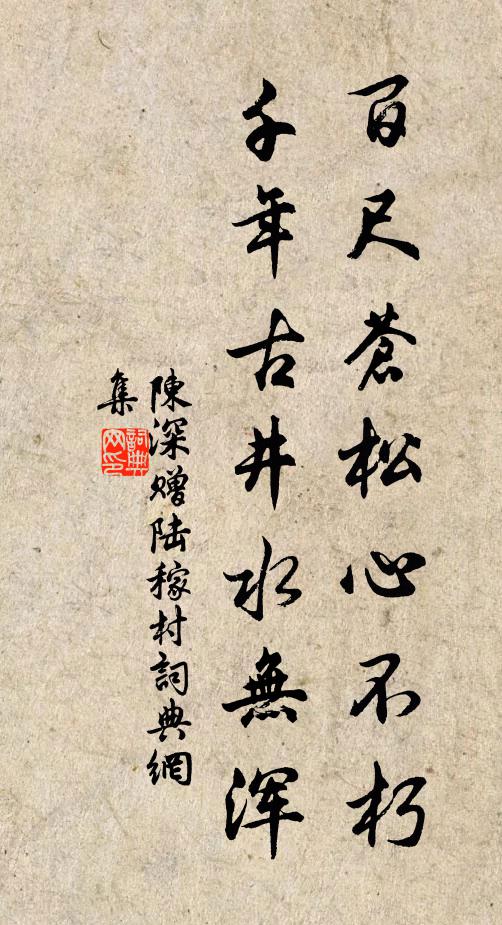 百尺蒼松心不朽
千年古井水無浑
陳深赠陆稼村詞典網
集
詞典网印